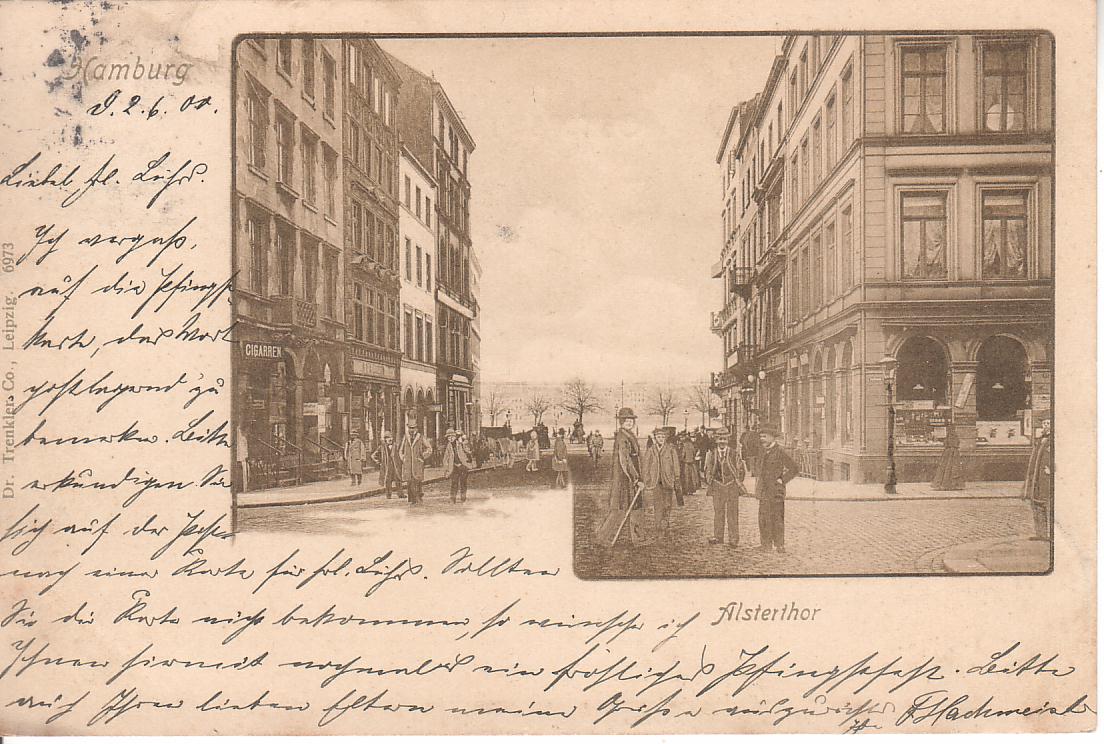 Hamburg
d. 2. 6. 00.
Liebes frl. Lührs.
Ich vergaß,
auf die Pfingst
Karte, das Wort
postlagernd zu
bemerken. Bitte
erkundigen Sie
sich auf der Post
nach einer Karte für frl. Lührs. Sollten
Sie die Karte nicht bekommen, so wünsche ich
Ihnen hiermit nochmals ein fröhliches Pfingstfest. Bitte
auch Ihren lieben Eltern meine Grüße auszurichten
Dr. Trenkler Co., Leipzig. 6973
CIGARREN
Alsterthor